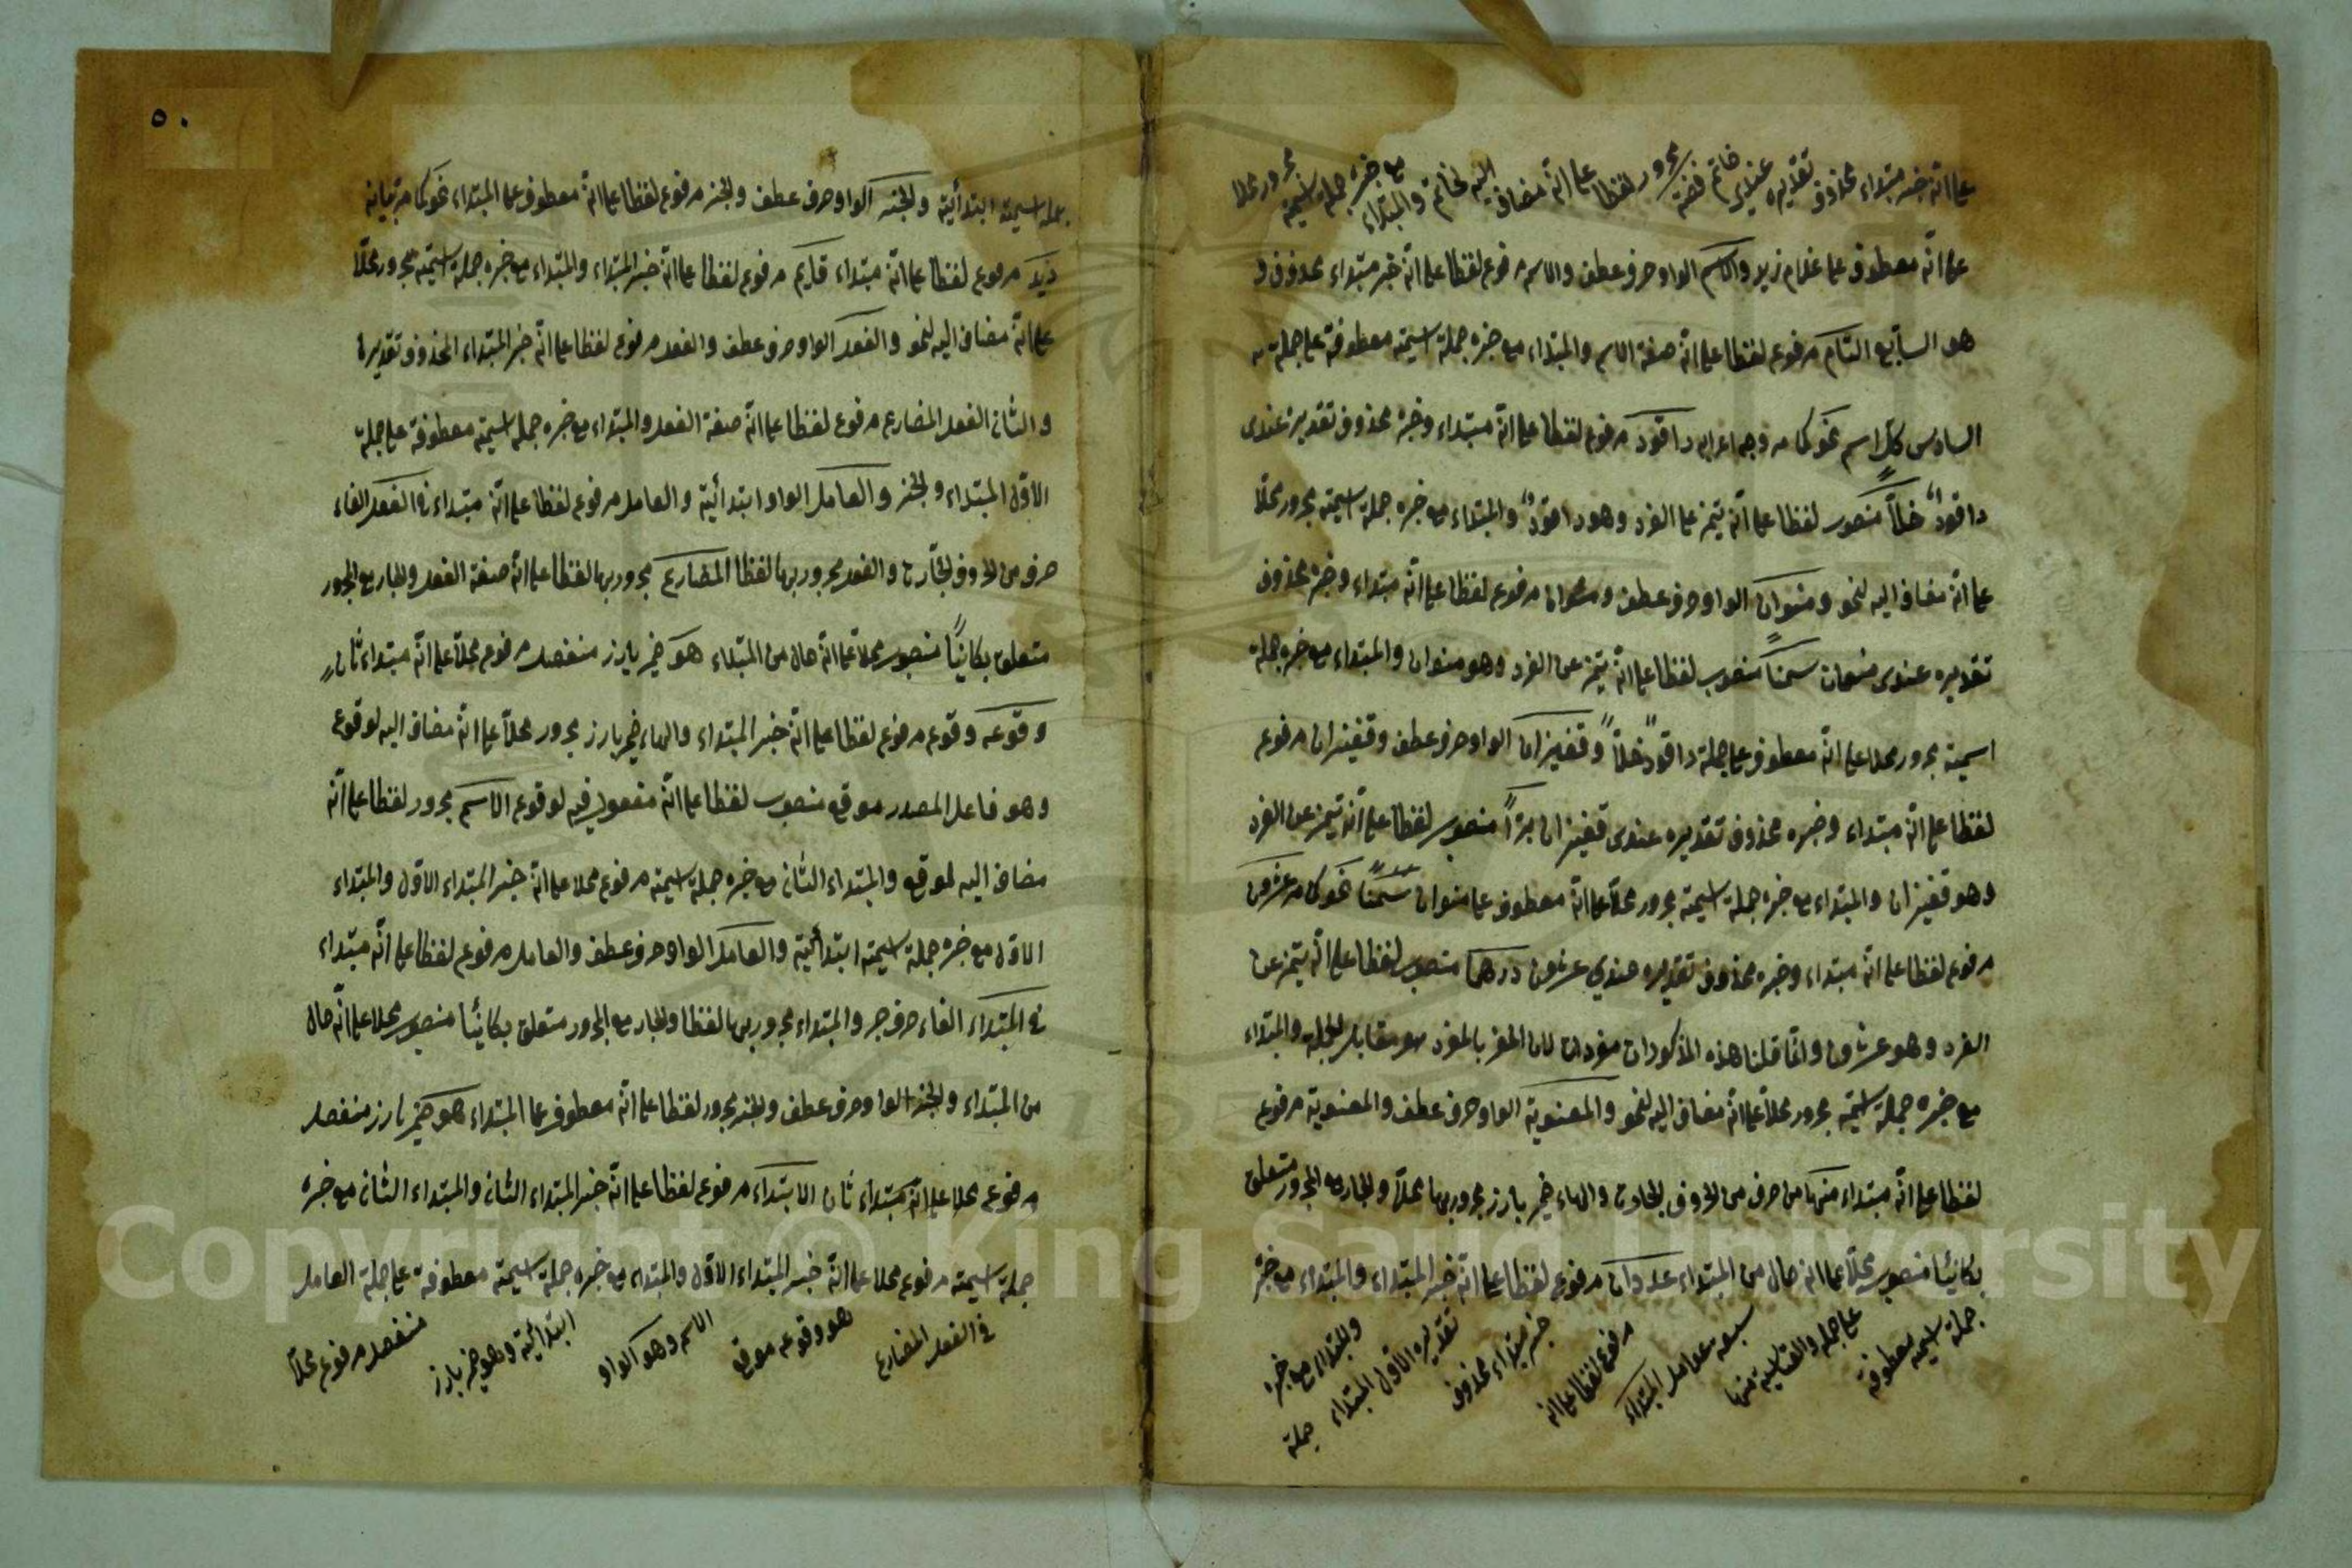 على انه خبر مبتداء محذوف تقديره عندى خاتم فضة مجرور لفظا على انه مضاف اليه لخاتم والمبتداء مع خبره جملة اسمية مجرور محلا
على انّه معطوف على غلام زيد والاسم الواو حرف عطف والاسم مرفوع لفظا على انّه خبر مبتداء محذوف و
هو السابع التام مرفوع لفظا على انّه صفة الاسم والمبتداء مع خبره جملة اسمية معطوفة على جملة
السادس كل اسم نحو كما مر وجه اعرابه داقود مرفوع لفظا على انّه مبتداء وخبره محذوف تقديره عندى
داقودٌ خلّاً منصوب لفظا على انّه تميز عن الفرد وهو داقودٌ والمبتداء مع خبره جملة اسمية مجرور محلّا
على انّه مضاف اليه لنحو ومنوان الواو حرف عطف ومنوان مرفوع لفظا على انّه مبتداء وخبره محذوف
تقديره عندى منوان سمناً منصوب لفظا على انّه تميز عن الفرد وهو منوان والمبتداء مع خبره جملة
اسمية مجرور محلا على انّه معطوف على جملة داقود خلّاً وقفيزان الواو حرف عطف وقفيزان مرفوع
لفظا على انّه مبتداء وخبره محذوف تقديره عندى قفيزان برّاً منصوب لفظا على انّه تميز عن الفرد
وهو قفيزان والمبتداء مع خبره جملة اسمية مجرور محلّا على انّه معطوف على منوان سمنًا نحو كما مر عشرون
مرفوع لفظا على انّه مبتداء وخبره محذوف تقديره عندي عشرون درهما منصوب لفظا على انّه تميز عن
الفرد وهو عشرون وانما قلنا هذه المذكورات مفردات لان المفرد هو مقابل الجملة والمبتداء
مع خبره جملة اسمية مجرور محلّا على انّه مضاف اليه لنحو والمعنوية الواو حرف عطف والمعنوية مرفوع
لفظا على انّه مبتداء منها من حرف من الحروف الجارة والهاء ضمير بارز مجرور بها محلّا والجار مع المجرور متعلق
بكائنًا منصوب محلّا على انّه حال من المبتداء عددان مرفوع لفظا على انّه خبر المبتداء والمبتداء مع خبره
جملة اسمية معطوفة
على جملة والقياسية منها
سبعة عوامل المبتداء
مرفوع لفظا على انه
خبر مبتداء محذوف
تقديره الاوّل المبتداء
والمبتداء مع خبره
جملة
٥٠
جملة اسمية ابتدائية والخبر الواو حرف عطف والخبر مرفوع لفظا على انّه معطوف على المبتداء نحو كما مر بيانه
زيد مرفوع لفظا على انّه مبتداء قايم مرفوع لفظا على انّه خبر المبتداء والمبتداء مع خبره جملة اسمية مجرور محلّا
على انّه مضاف اليه لنحو والفعل الواو حرف عطف والفعل مرفوع لفظا على انّه خبر المبتداء المحذوف تقديره
والثانى الفعل المضارع مرفوع لفظا على انّه صفة الفعل والمبتداء مع خبره جملة اسمية معطوفة على جملة
الاوّل المبتداء والخبر والعامل الواو ابتدائية والعامل مرفوع لفظا على انّه مبتداء فى الفعل الفاء
حرف من الحروف الجارّة والفعل مجرور بها لفظا المضارع مجرور بها لفظا على انّه صفة الفعل والجار مع المجرور
متعلق بكائنًا منصوب محلّا على انّه حال من المبتداء هو ضمير بارز منفصل مرفوع محلّا على انّه مبتداء ثانٍ
وقوعه وقوع مرفوع لفظا على انّه خبر المبتداء والهاء ضمير بارز مجرور محلّا على انّه مضاف اليه لوقوع
وهو فاعل المصدر موقع منصوب لفظا على انّه مفعول فيه لوقوع الاسم مجرور لفظا على انّه
مضاف اليه لموقع والمبتداء الثانى مع خبره جملة اسمية مرفوع محلا على انّه خبر المبتداء الاوّل والمبتداء
الاوّل مع خبره جملة اسمية ابتدائية والعامل الواو حرف عطف والعامل مرفوع لفظا على انّه مبتداء
فى المبتداء الفاء حرف جر والمبتداء مجرور بها لفظا والجار مع المجرور متعلق بكائنًا منصوب محلا على انّه حال
من المبتداء والخبر الواو حرف عطف والخبر مجرور لفظا على انّه معطوف على المبتداء هو ضمير بارز منفصل
مرفوع محلا على انّه مبتداء ثان الابتداء مرفوع لفظا على انّه خبر المبتداء الثانى والمبتداء الثانى مع خبره
جملة اسمية مرفوع محلا على انّه خبر المبتداء الاوّل والمبتداء مع خبره جملة اسمية معطوفة على جملة العامل
فى الفعل المضارع
هو وقوعه موقع
الاسم وهو الواو
ابتدائية وهو ضمير بارز
منفصل مرفوع محلّا
Copyright © King Saud University